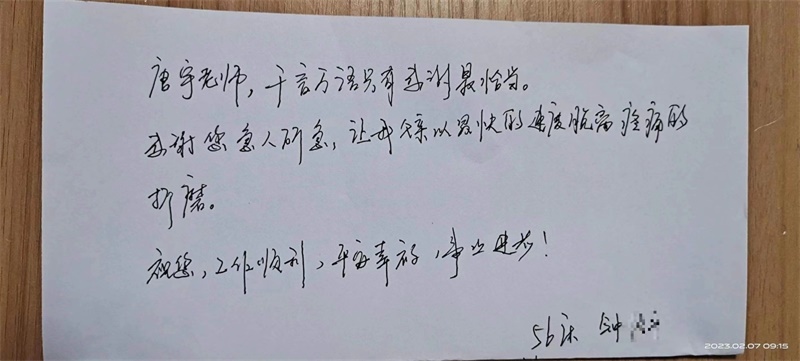 唐宇老师，千言万语只有感谢最恰当。
感谢您急人所急，让我父亲以最快的速度脱离疼痛的
折磨。
祝您，工作顺利，平安幸福，事业进步！
56床 钟
2023.02.07 09:15